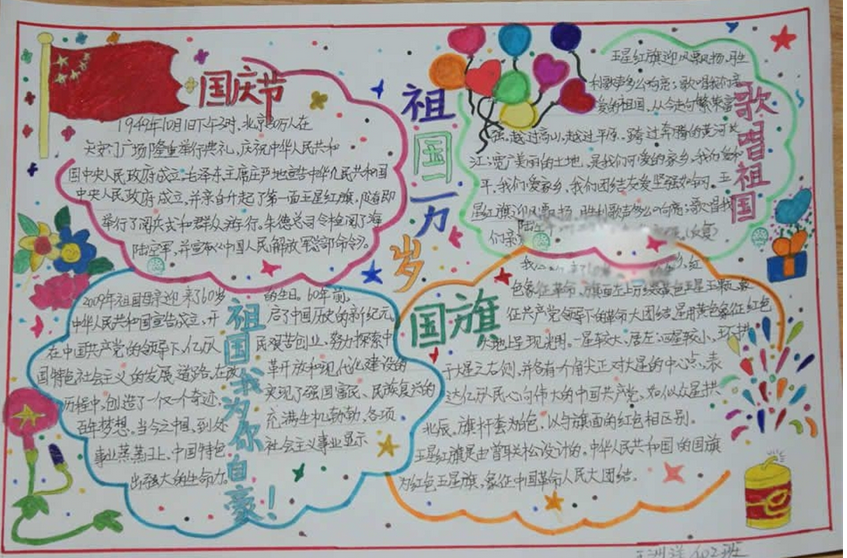 国庆节
1949年10月1日下午3时,北京30万人在
天安门广场隆重举行典礼,庆祝中华人民共和
国中央人民政府成立。毛泽东主席庄严地宣告中华人民共和国
中央人民政府成立,并亲自升起了第一面五星红旗,
举行了阅兵式和群众游行。朱德总司令检阅了海
陆空军,并宣
祖国万岁
歌唱祖国
五星红旗迎风飘扬,胜
利歌声多么响亮;歌唱我们亲
爱的祖国,从今走向繁荣富
强。越过高山,越过平原,跨过奔腾的黄河长
江;宽广美丽的土地,是我们可爱的家乡,我们爱和
平,我们爱家乡,我们团结友爱坚强如钢。五
星红旗迎风飘扬,胜利歌声多么响亮;歌唱我
们亲
祖国我为你自豪!
2009年祖国母亲迎来了60岁的生日。60年前,
中华人民共和国宣告成立,开启了中国历史的新纪元。
在中国共产党的领导下,亿万人民艰苦创业,努力探索中
国特色社会主义的发展道路,在改革开放和现代化建设的
历程中,创造了一个又一个奇迹,实现了强国富民、民族复兴的
百年梦想。当今之中国,到处充满生机勃勃,各项
事业蒸蒸日上,中国特色社会主义事业显示
出强大的生命力。
国旗
色象征革命,旗面左上方
征共产党领导下的革命大团结,星用黄色象征红色
大地上呈现光明。一星较大,居左,四星较小,环拱
于大星之右侧,并各有一个角尖正对大星的中心点,表
达亿万人民心向伟大的中国共产党,如似众星拱
北辰。旗杆套为白色,以与旗面的红色相区别。
五星红旗是由曾联松设计的。中华人民共和国的国旗
为红色五星旗,象征中国革命人民大团结。
402班